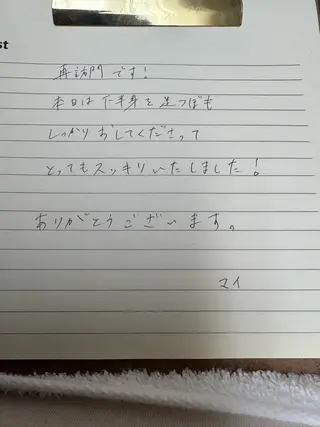 st
再訪門です!
本日は下半身を足つぼも
しっかりおしてくださって
とってもスッキリいたしました!
ありがとうございます。
マイ